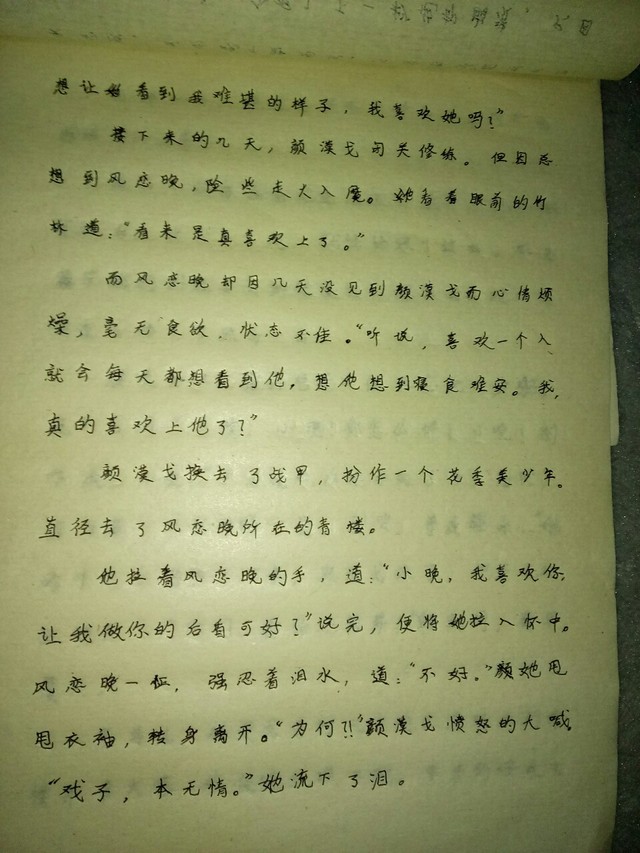 想让她看到我难堪的样子，我喜欢她吗？”
接下来的几天，颜漠戈闭关修练。但因总
想到风恋晚，险些走火入魔。她看着眼前的竹
林道：“看来是真喜欢上了。”
而风恋晚却因几天没见到颜漠戈而心情烦
燥，毫无食欲，状态不佳。“听说，喜欢一个人
就会每天都想看到他，想他想到寝食难安。我，
真的喜欢上他了？”
颜漠戈换去了战甲，扮作一个花季美少年。
直径去了风恋晚所在的青楼。
他拉着风恋晚的手，道：“小晚，我喜欢你，
让我做你的后盾可好？”说完，便将她拉入怀中。
风恋晚一怔，强忍着泪水，道：“不好。”颜她甩
甩衣袖，转身离开。“为何?!”颜漠戈愤怒的大喊
“戏子，本无情。”她流下了泪。